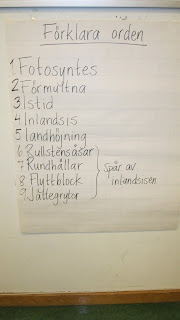 Förklara orden
1. Fotosyntes
2 Förmultna
3 Istid
4 Inlandsis
5. landhöjning
6 Rullstensåsar
7 Rundhällar
8 Flyttblock
9. Jättegrytor
Spår av
inlandsisen